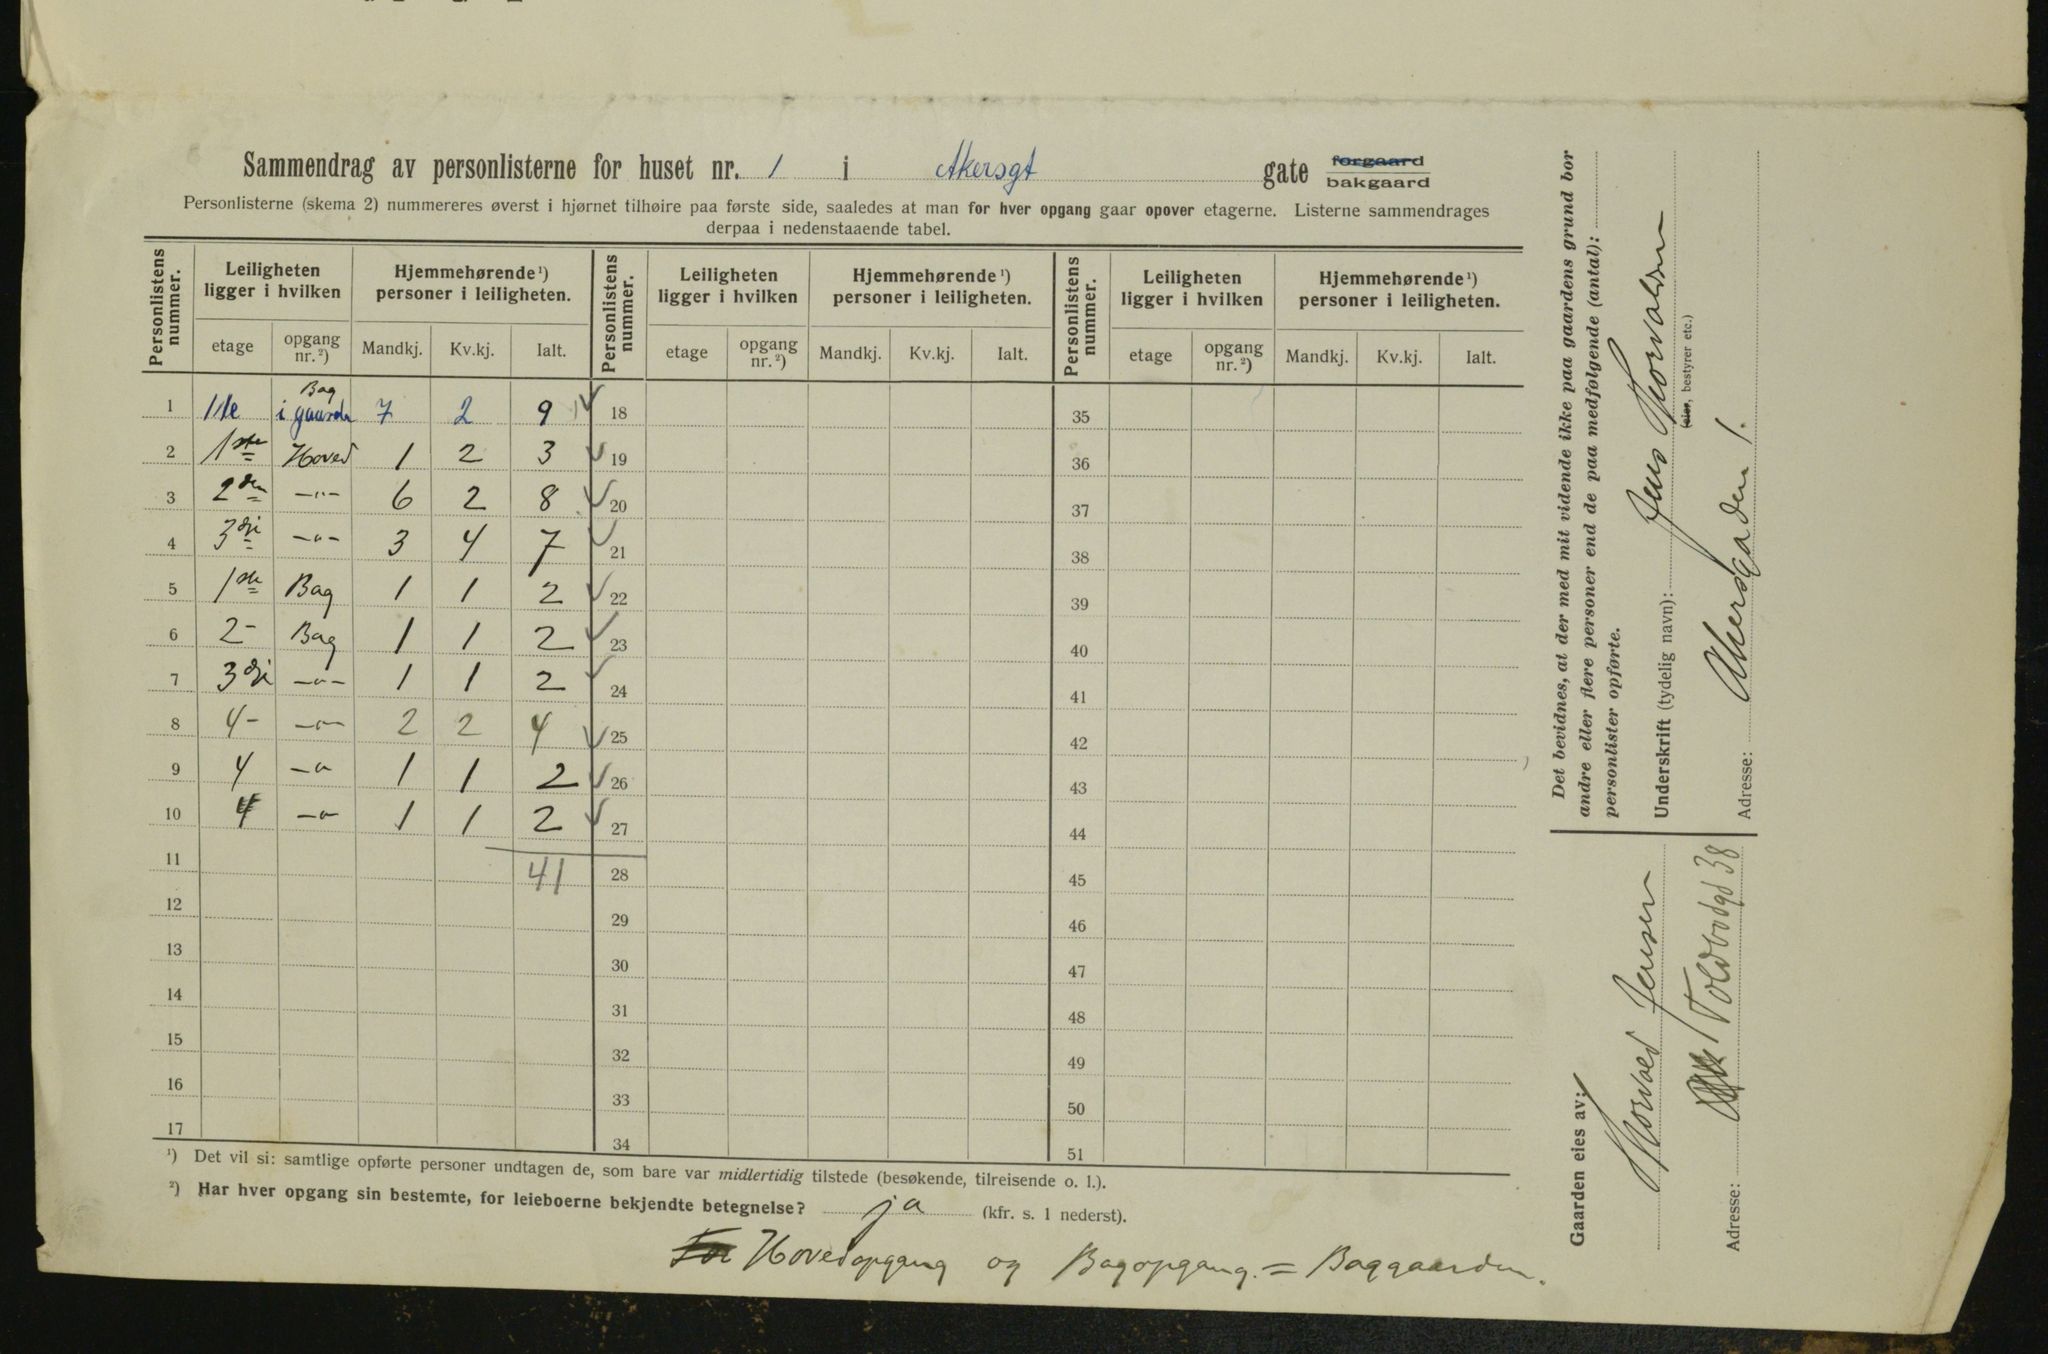 Sammendrag av personlisterne for huset nr. 1 i Akersgt gate forgaard
bakgaard
Personlisterne (skema 2) nummereres øverst i hjørnet tilhøire paa første side, saaledes at man for hver opgang gaar opover etagerne. Listerne sammendrages
derpaa i nedenstaaende tabel.
Personlistens nummer. Leiligheten ligger i hvilken Hjemmehørende ¹) personer i leiligheten. Personlistens nummer. Leiligheten ligger i hvilken Hjemmehørende ¹) personer i leiligheten. Personlistens nummer. Leiligheten ligger i hvilken Hjemmehørende ¹) personer i leiligheten.
etage opgang nr. ²) Mandkj. Kv.kj. Ialt. etage opgang nr. ²) Mandkj. Kv.kj. Ialt. etage opgang nr. ²) Mandkj. Kv.kj. Ialt.
1 1ste Bag i gaarden 7 2 9 18 35
2 1ste Hoved 1 2 3 19 36
3 2den -"- 6 2 8 20 37
4 3dje -"- 3 4 7 21 38
5 1ste Bag 1 1 2 22 39
6 2- Bag 1 1 2 23 40
7 3dje -"- 1 1 2 24 41
8 4- -"- 2 2 4 25 42
9 4 -" 1 1 2 26 43
10 4 -"- 1 1 2 27 44
11 41 28 45
12 29 46
13 30 47
14 31 48
15 32 49
16 33 50
17 34 51
¹) Det vil si: samtlige opførte personer undtagen de, som bare var midlertidig tilstede (besøkende, tilreisende o. l.).
²) Har hver opgang sin bestemte, for leieboerne bekjendte betegnelse? ja (kfr. s. 1 nederst).
Hovedopgang og Bagopgang. = Baggaarden.
Det bevidnes, at der med mit vidende ikke paa gaardens grund bor
andre eller flere personer end de paa medfølgende (antal):
personlister opførte.
Underskrift (tydelig navn): Jens Thorvaldsen
(eier, bestyrer etc.)
Adresse: Akersgaden 1.
Gaarden eies av:
Thorvald Jensen
Adresse: Toldbodgd 38